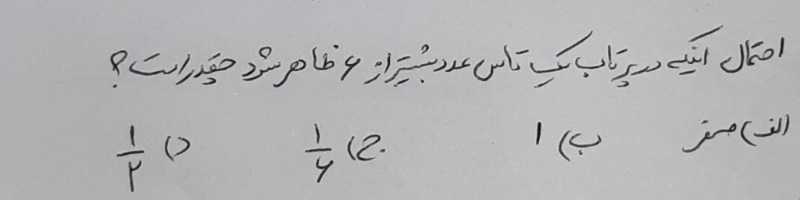 احتمال اینکه در پرتاب یک تاس عدد بیشتر از ۶ ظاهر شود چقدر است؟
الف) صفر ب) ۱ ج) ۱/۶ د) ۱/۲